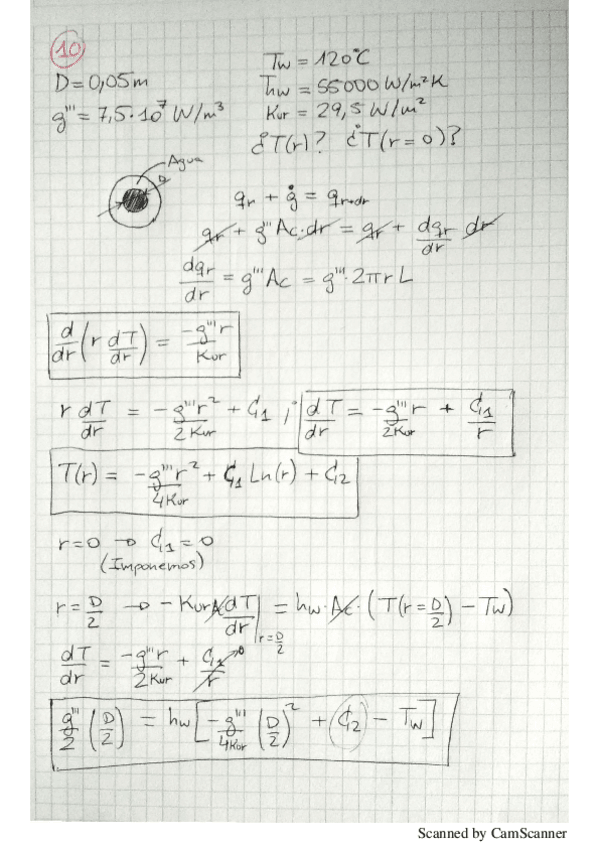 10
D = 0,05m
g''' = 7,5·10⁷ W/m³
Tw = 120°C
hw = 55000 W/m²K
Kur = 29,5 W/m²
¿T(r)? ¿T(r=0)?
Agua
D
qr + ġ = qr+dr
qr + g''' Ac·dr = qr + dqr/dr dr
dqr/dr = g''' Ac = g'''·2πr L
d/dr (r dT/dr) = -g''' r / Kur
r dT/dr = -g''' r² / 2 Kur + C1 ; dT/dr = -g''' r / 2Kur + C1/r
T(r) = -g''' r² / 4 Kur + C1 Ln(r) + C2
r=0 → C1 = 0
(Imponemos)
r = D/2 → - Kur Ac dT/dr |r=D/2 = hw·Ac·(T(r=D/2) - Tw)
dT/dr = -g''' r / 2 Kur + C1/r →0
g'''/2 (D/2) = hw [-g'''/4Kur (D/2)² + C2 - Tw]
Scanned by CamScanner